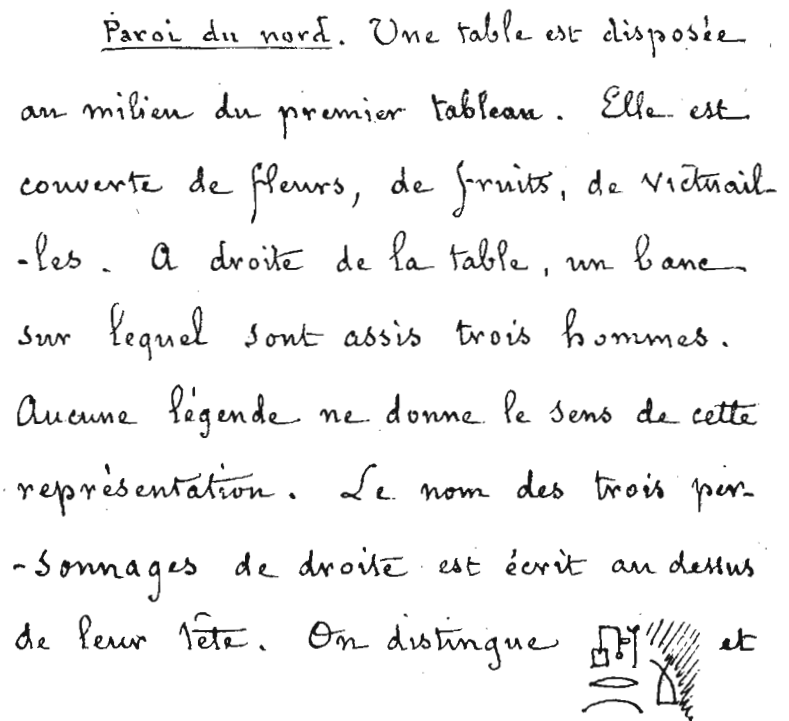 Paroi du nord. Une table est disposée
au milieu du premier tableau. Elle est
couverte de fleurs, de fruits, de victuail-
-les. A droite de la table, un banc
sur lequel sont assis trois hommes.
Aucune légende ne donne le sens de cette
représentation. Le nom des trois per-
-sonnages de droite est écrit au dessus
de leur tête. On distingue et